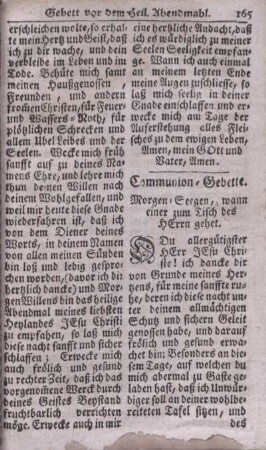 Gebett vor dem Heil. Abendmahl. 165
erschleichen wolte, so erhalte
mein Hertz und Geist, daß ich
zu dir wache, und dein
verbleibe im Leben und im
Tode. Behüte mich samt
meinen Haußgenossen,
Freunden, und andern
frommen Christen, für Feuer-
und Wassers-Noth, für
plötzlichen Schrecken und
allem Ubel Leibes und der
Seelen. Wecke mich früh
sanfft auf zu deines Namens
Ehre, und lehre mich
thun deinen Willen nach
deinem Wohlgefallen, und
weil mir heute diese Gnade
wiederfahren ist, daß ich
von dem Diener deines
Worts, in deinem Namen
von allen meinen Sünden
bin loß und ledig gesprochen
worden, (davor ich dir
hertzlich dancke) und Morgen
Willens bin das heilige
Abendmal meines liebsten
Heylandes JEsu Christi
zu empfahen, so laß mich
diese nacht sanfft und sicher
schlaffen; Erwecke mich
auch frölich und gesund
zu rechter Zeit, daß ich das
vorgenomene Werck durch
deines Geistes Beystand
fruchtbarlich verrichten
möge. Erwecke auch in mir
eine hertzliche Andacht, daß
ich es würdiglich zu meiner
Seelen Seeligkeit empfange.
Wann ich auch einmal
an meinem letzten Ende
meine Augen zuschliesse, so
laß mich selig in deiner
Gnade einschlaffen und erwecke
mich am Tage der
Auferstehung alles Fleisches
zu dem ewigen Leben,
Amen, mein GOtt und
Vater, Amen.
Communion-Gebette.
Morgen-Seegen, wann
einer zum Tisch des
HErrn gehet.
O Du allergütigster
HErr JEsu Christe!
ich dancke dir von
Grunde meines Hertzens,
für meine sanffte ruhe,
deren ich diese nacht unter
deinem allmächtigen
Schutz und sichern Geleit
genossen habe, und darauf
frölich und gesund erwachet
bin; Besonders an diesem
Tage, auf welchen du
mich abermal zu Gaste geladen
hast, daß ich Unwürdiger
soll an deiner wohlbereiteten
Tafel sitzen, und
des